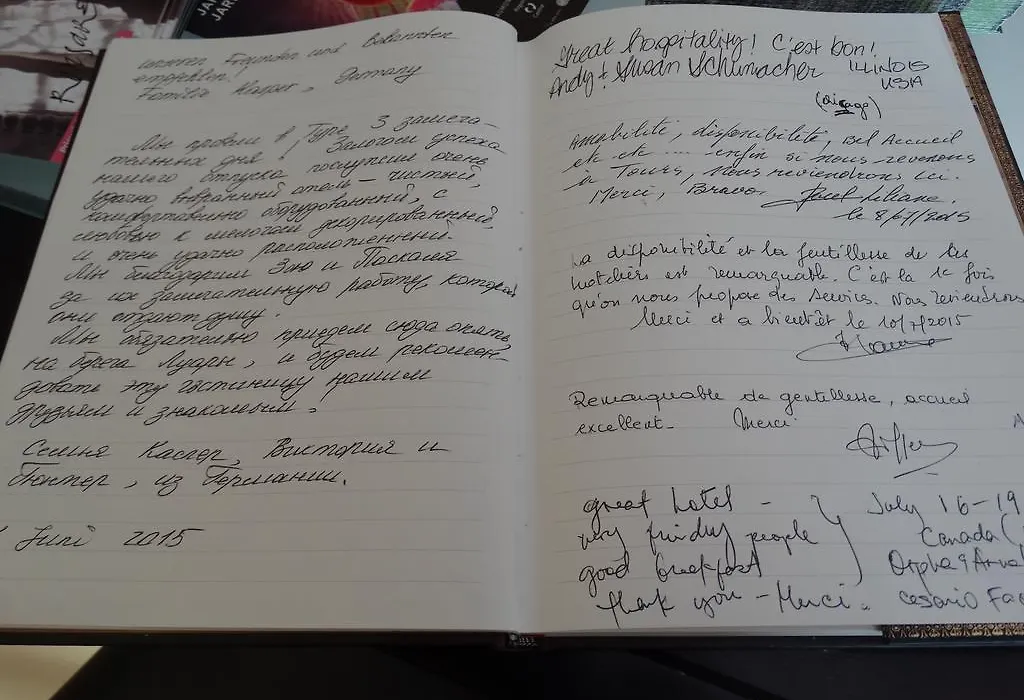 unseren Freunden und Bekannten
empfehlen!
Familie Kasper, Germany
Мы провели в Type 3 замеча-
тельных дня! Залогом успеха
нашего отпуска послужил очень
удачно выбранный отель - чистый,
комфортабельно оборудованный, с
любовью к мелочам декорированный,
и очень удачно расположенный.
Мы благодарим Зою и Паскаля
за их замечательную работу, которой
они отдают душу.
Мы обязательно приедем сюда опять,
на берега Луары, и будем рекомен-
довать эту гостиницу нашим
друзьям и знакомым.
Семья Каспер, Виктория и
Гюнтер, из Германии.
Juni 2015
Great hospitality! C'est bon!
Andy & Susan Schumacher ILLINOIS
USA
(Chicago)
Amabilité, disponibilité, Bel Accueil
etc etc .... enfin si nous revenons
à Tours, nous reviendrons ici.
Merci, Bravo.
le 8/07/2015
La disponibilité et la gentillesse de les
hoteliers est remarquable. C'est la 1e fois
qu'on nous propose des services. Nous reviendrons
Merci et a bientôt le 10/7/2015
Remarquable de gentillesse, accueil
excellent. Merci
great hotel - July 16-19
very frindly people Canada (
good breakfast Orpha &
thank you - Merci. cesario